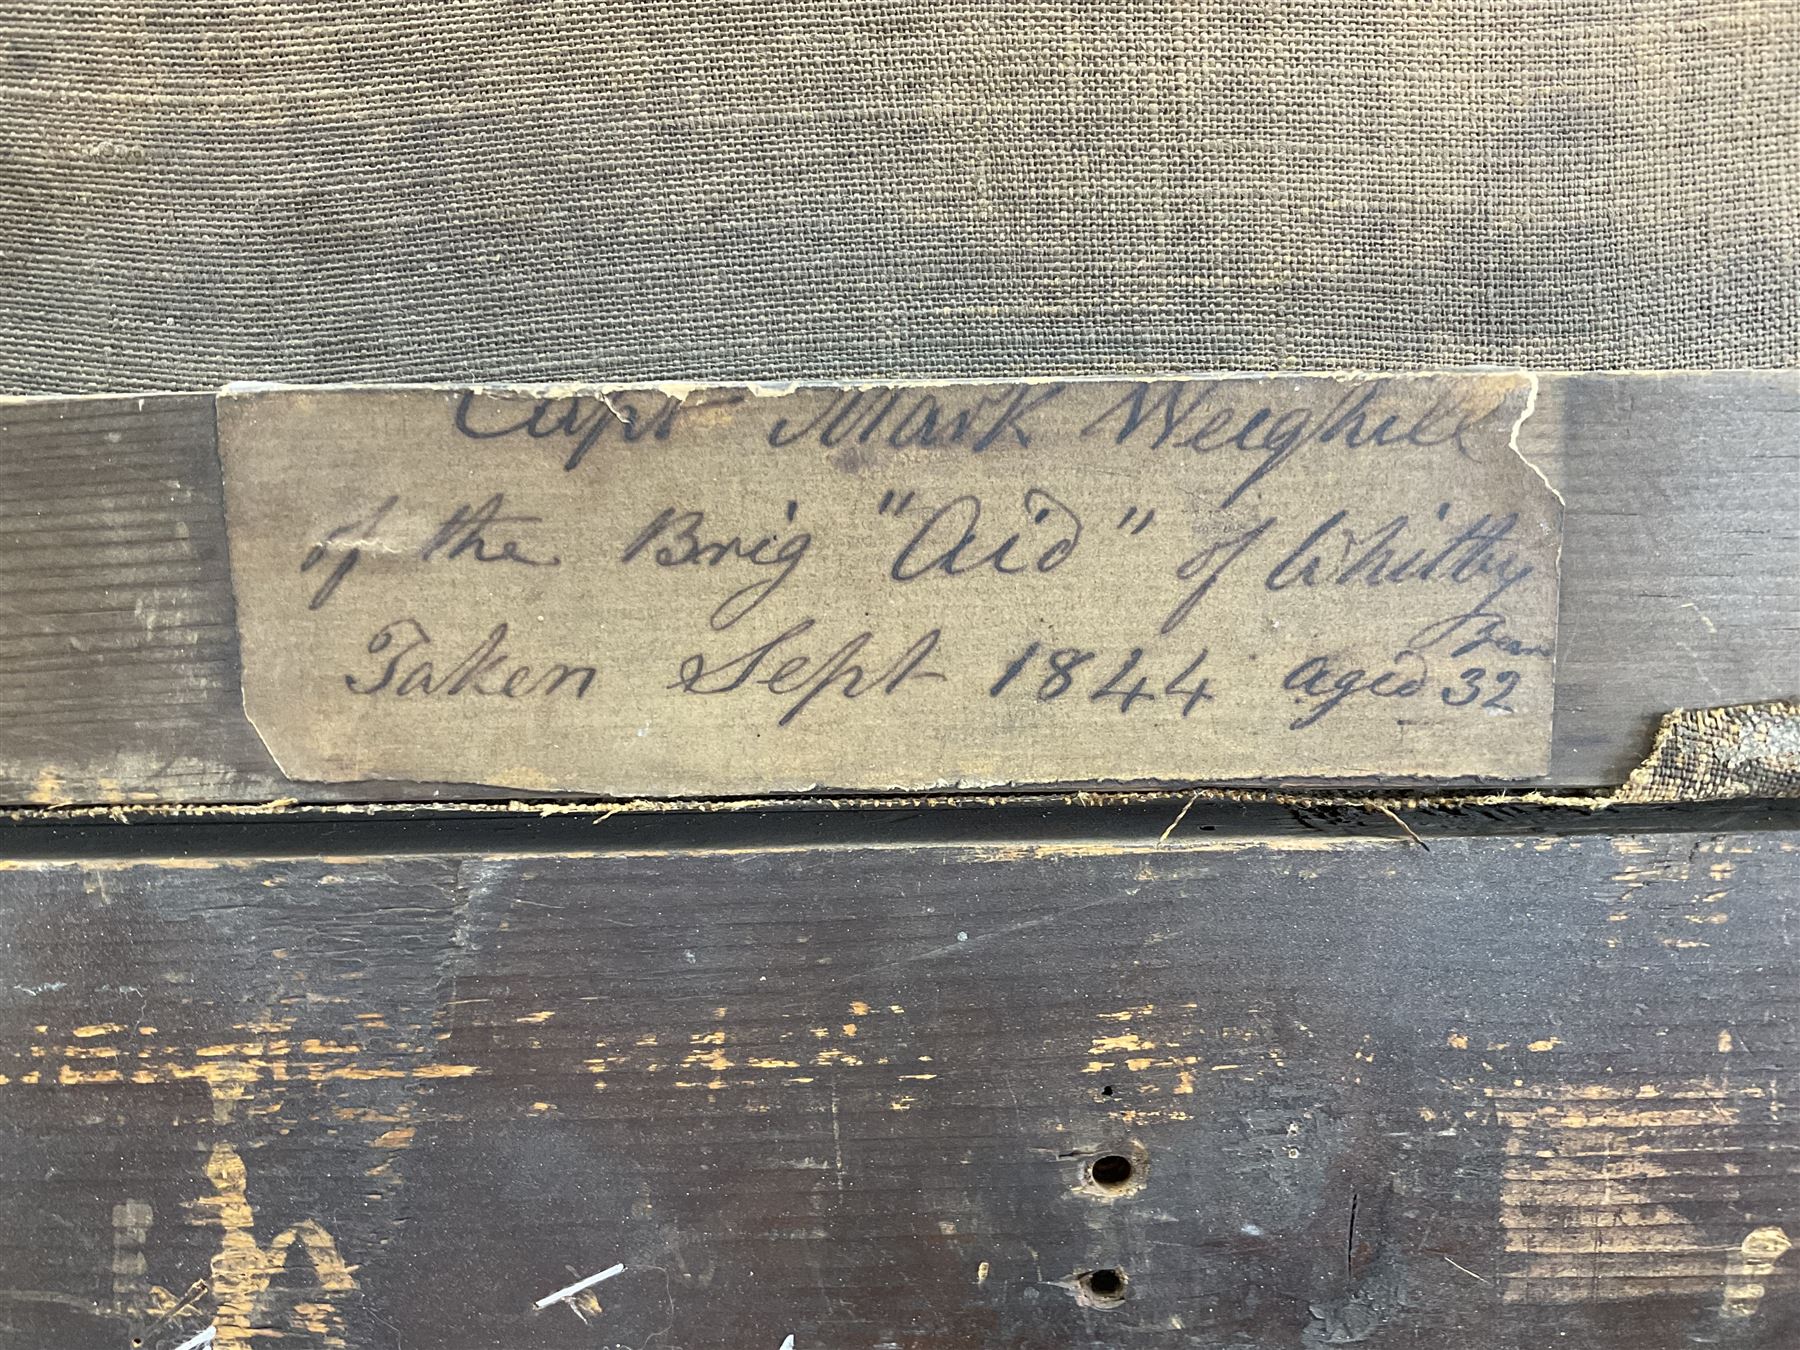 Capt Mark Weighill
of the Brig "Aid" of Whitby
Taken Sept 1844 aged 32